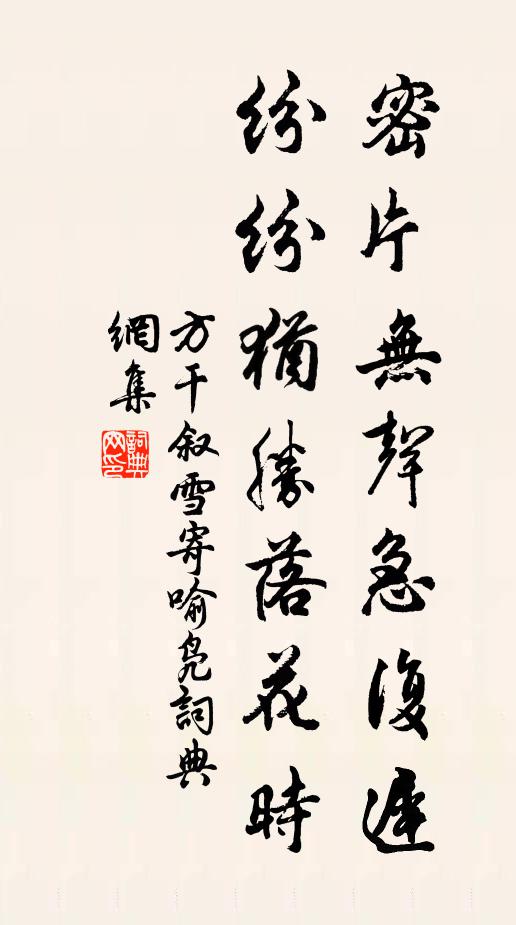 密片無聲急復遲
紛紛猶勝落花時
方干叙雪寄喻凫詞典
網集
詞典网印